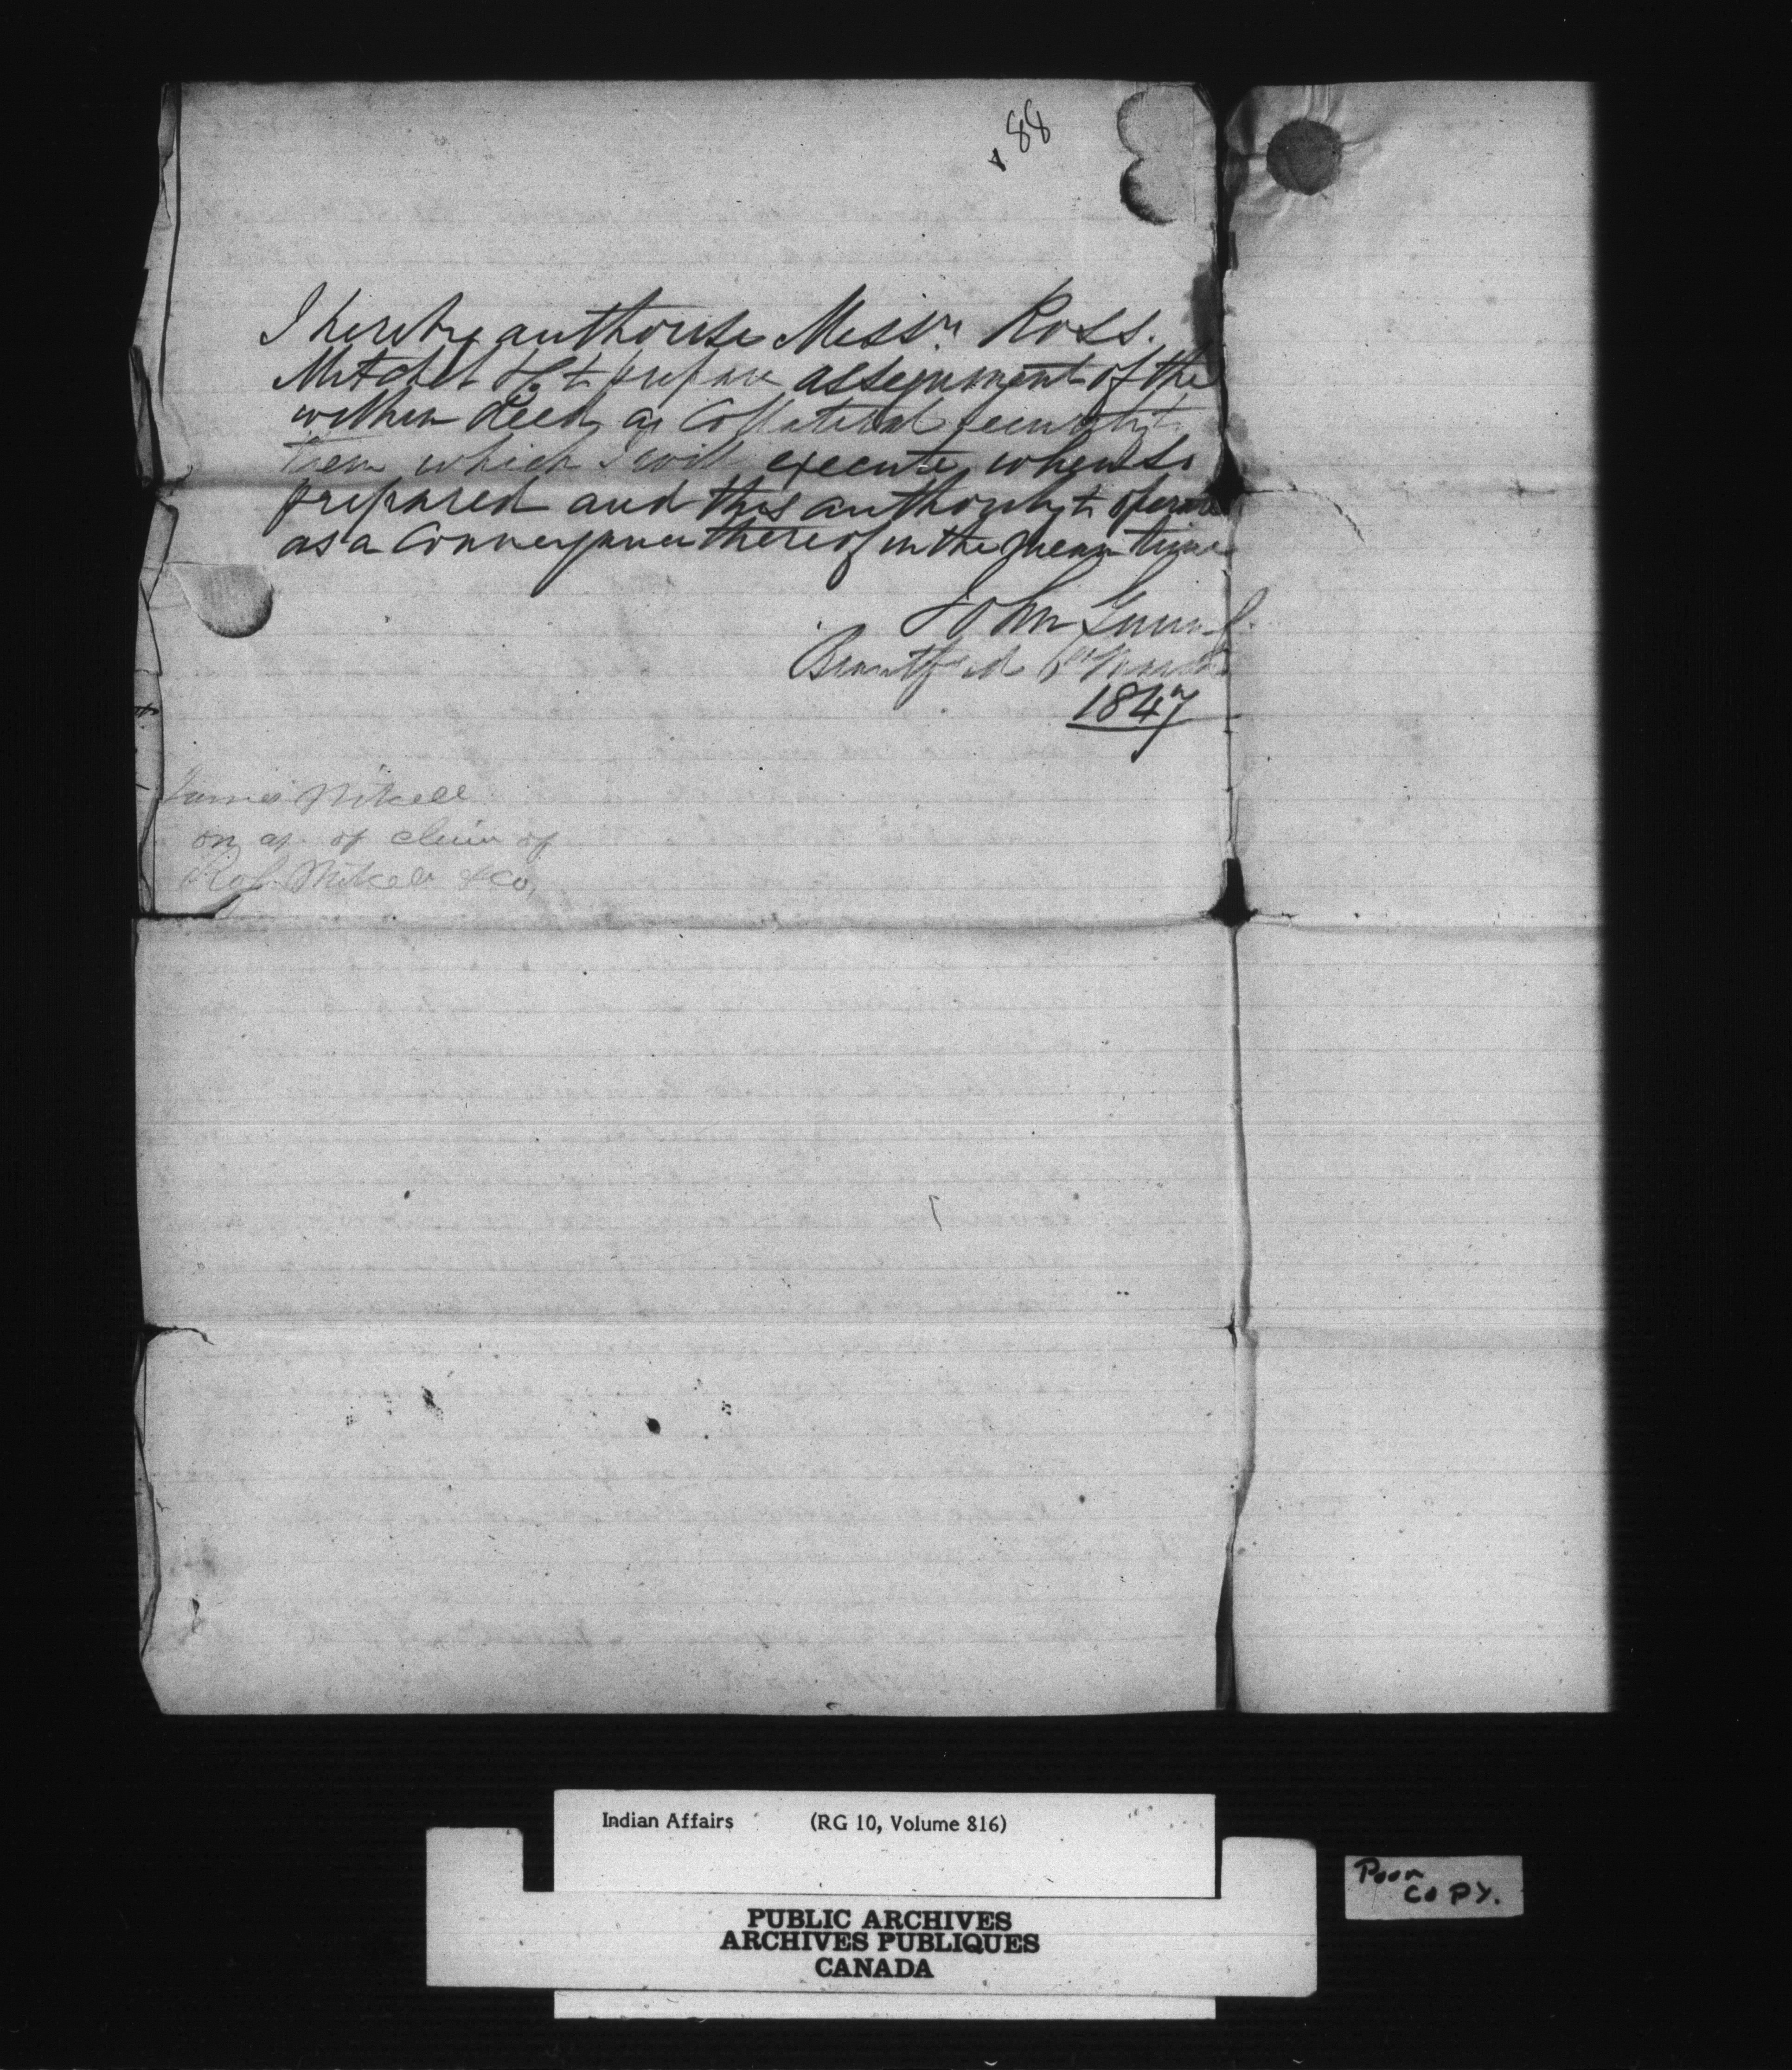 88
I hereby authorise Messrs. Ross.
Mitchel & Co to prepare assignment of the
within deed as Collateral security to
them which I will execute when so
prepared and this authority to operate
as a Conveyance thereof in the mean time
John
Brantford 1847
James Mitchell
on of claim of
Ross Mitchell & Co,
Indian Affairs (RG 10, Volume 816)
PUBLIC ARCHIVES
ARCHIVES PUBLIQUES
CANADA
Poor
COPY.